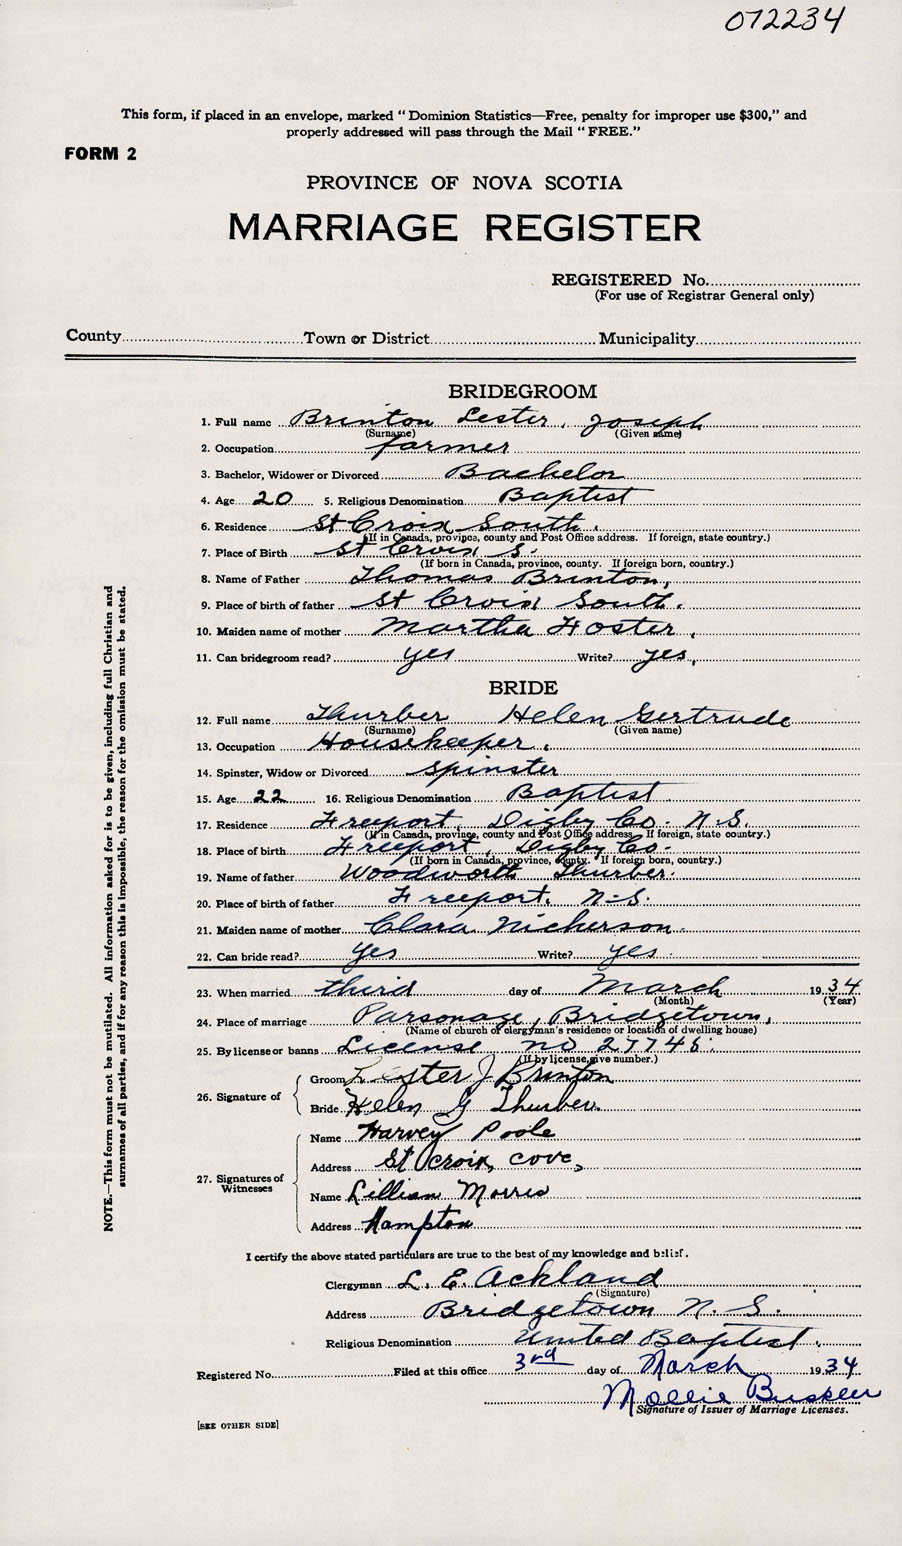 072234
This form, if placed in an envelope, marked “Dominion Statistics—Free, penalty for improper use $300,” and
properly addressed will pass through the Mail “FREE.”
FORM 2
PROVINCE OF NOVA SCOTIA
MARRIAGE REGISTER
REGISTERED No.
(For use of Registrar General only)
County Town or District Municipality
BRIDEGROOM
1. Full name Brinton Lester, Joseph
(Surname) (Given name)
2. Occupation farmer
3. Bachelor, Widower or Divorced Bachelor
4. Age 20 5. Religious Denomination Baptist
6. Residence St Croix South.
(If in Canada, province, county and Post Office address. If foreign, state country.)
7. Place of Birth St Croix S.
(If born in Canada, province, county. If foreign born, country.)
8. Name of Father Thomas Brinton,
9. Place of birth of father St Croix South.
10. Maiden name of mother Martha Foster,
11. Can bridegroom read? yes Write? yes,
BRIDE
12. Full name Thurber Helen Gertrude
(Surname) (Given name)
13. Occupation Housekeeper.
14. Spinster, Widow or Divorced Spinster
15. Age 22 16. Religious Denomination Baptist
17. Residence Freeport, Digby Co. N.S.
(If in Canada, province, county and Post Office address. If foreign, state country.)
18. Place of birth Freeport, Digby Co.
(If born in Canada, province, county. If foreign born, country.)
19. Name of father Woodworth Thurber.
20. Place of birth of father Freeport. N-S.
21. Maiden name of mother Clara Nickerson.
22. Can bride read? yes Write? yes.
23. When married third day of March 1934
(Month) (Year)
24. Place of marriage Parsonage, Bridgetown,
(Name of church of clergyman's residence or location of dwelling house)
25. By license or banns License no 27748.
(If by license, give number.)
26. Signature of
Groom Lester J Brinton
Bride Helen G Thurber.
27. Signatures of Witnesses
Name Harvey Poole
Address St Croix, Cove,
Name Lillian Morris
Address Hampton
I certify the above stated particulars are true to the best of my knowledge and belief.
Clergyman L. E. Ackland
(Signature)
Address Bridgetown N. S.
Religious Denomination United Baptist.
Registered No. Filed at this office 3rd day of March 1934
Mollie
Signature of Issuer of Marriage Licenses.
[SEE OTHER SIDE]
NOTE.—This form must not be mutilated. All information asked for is to be given, including full Christian and
surnames of all parties, and if for any reason this is impossible, the reason for the omission must be stated.